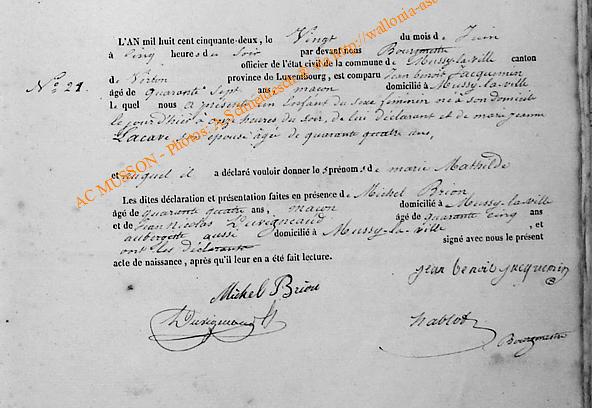 L'AN mil huit cent cinquante-deux, le Vingt du mois de Juin
à Cinq heures du soir par devant nous Bourgmestre
officier de l'état civil de la commune de Mussy-la-ville canton
N° 21.
de Virton province de Luxembourg, est comparu Jean benoit Jacquemin
âgé de quarante sept ans, maçon domicilié à Mussy-la-ville
lequel nous a présenté un Enfant du sexe féminin né à son domicile
le jour d'hier à onze heures du soir, de lui déclarant et de marie jeanne
Lacave son épouse âgée de quarante quatre ans,
et auquel il a déclaré vouloir donner les prénoms de marie Mathilde
Les dites déclaration et présentation faites en présence de Michel Brion
âgé de quarante quatre ans, maçon domicilié à Mussy-la-ville
et de Jean Nicolas Duvigneaud âgé de quarante cinq ans
aubergiste aussi domicilié à Mussy-la-ville, et
ont les déclarants signé avec nous le présent
acte de naissance, après qu'il leur en a été fait lecture.
jean benoit jacquemin
Michel Brion
Duvigneaud
Nablot
Bourgmestre
AC MUSSON - Photos: A.Schmeitz http://wallonia-as